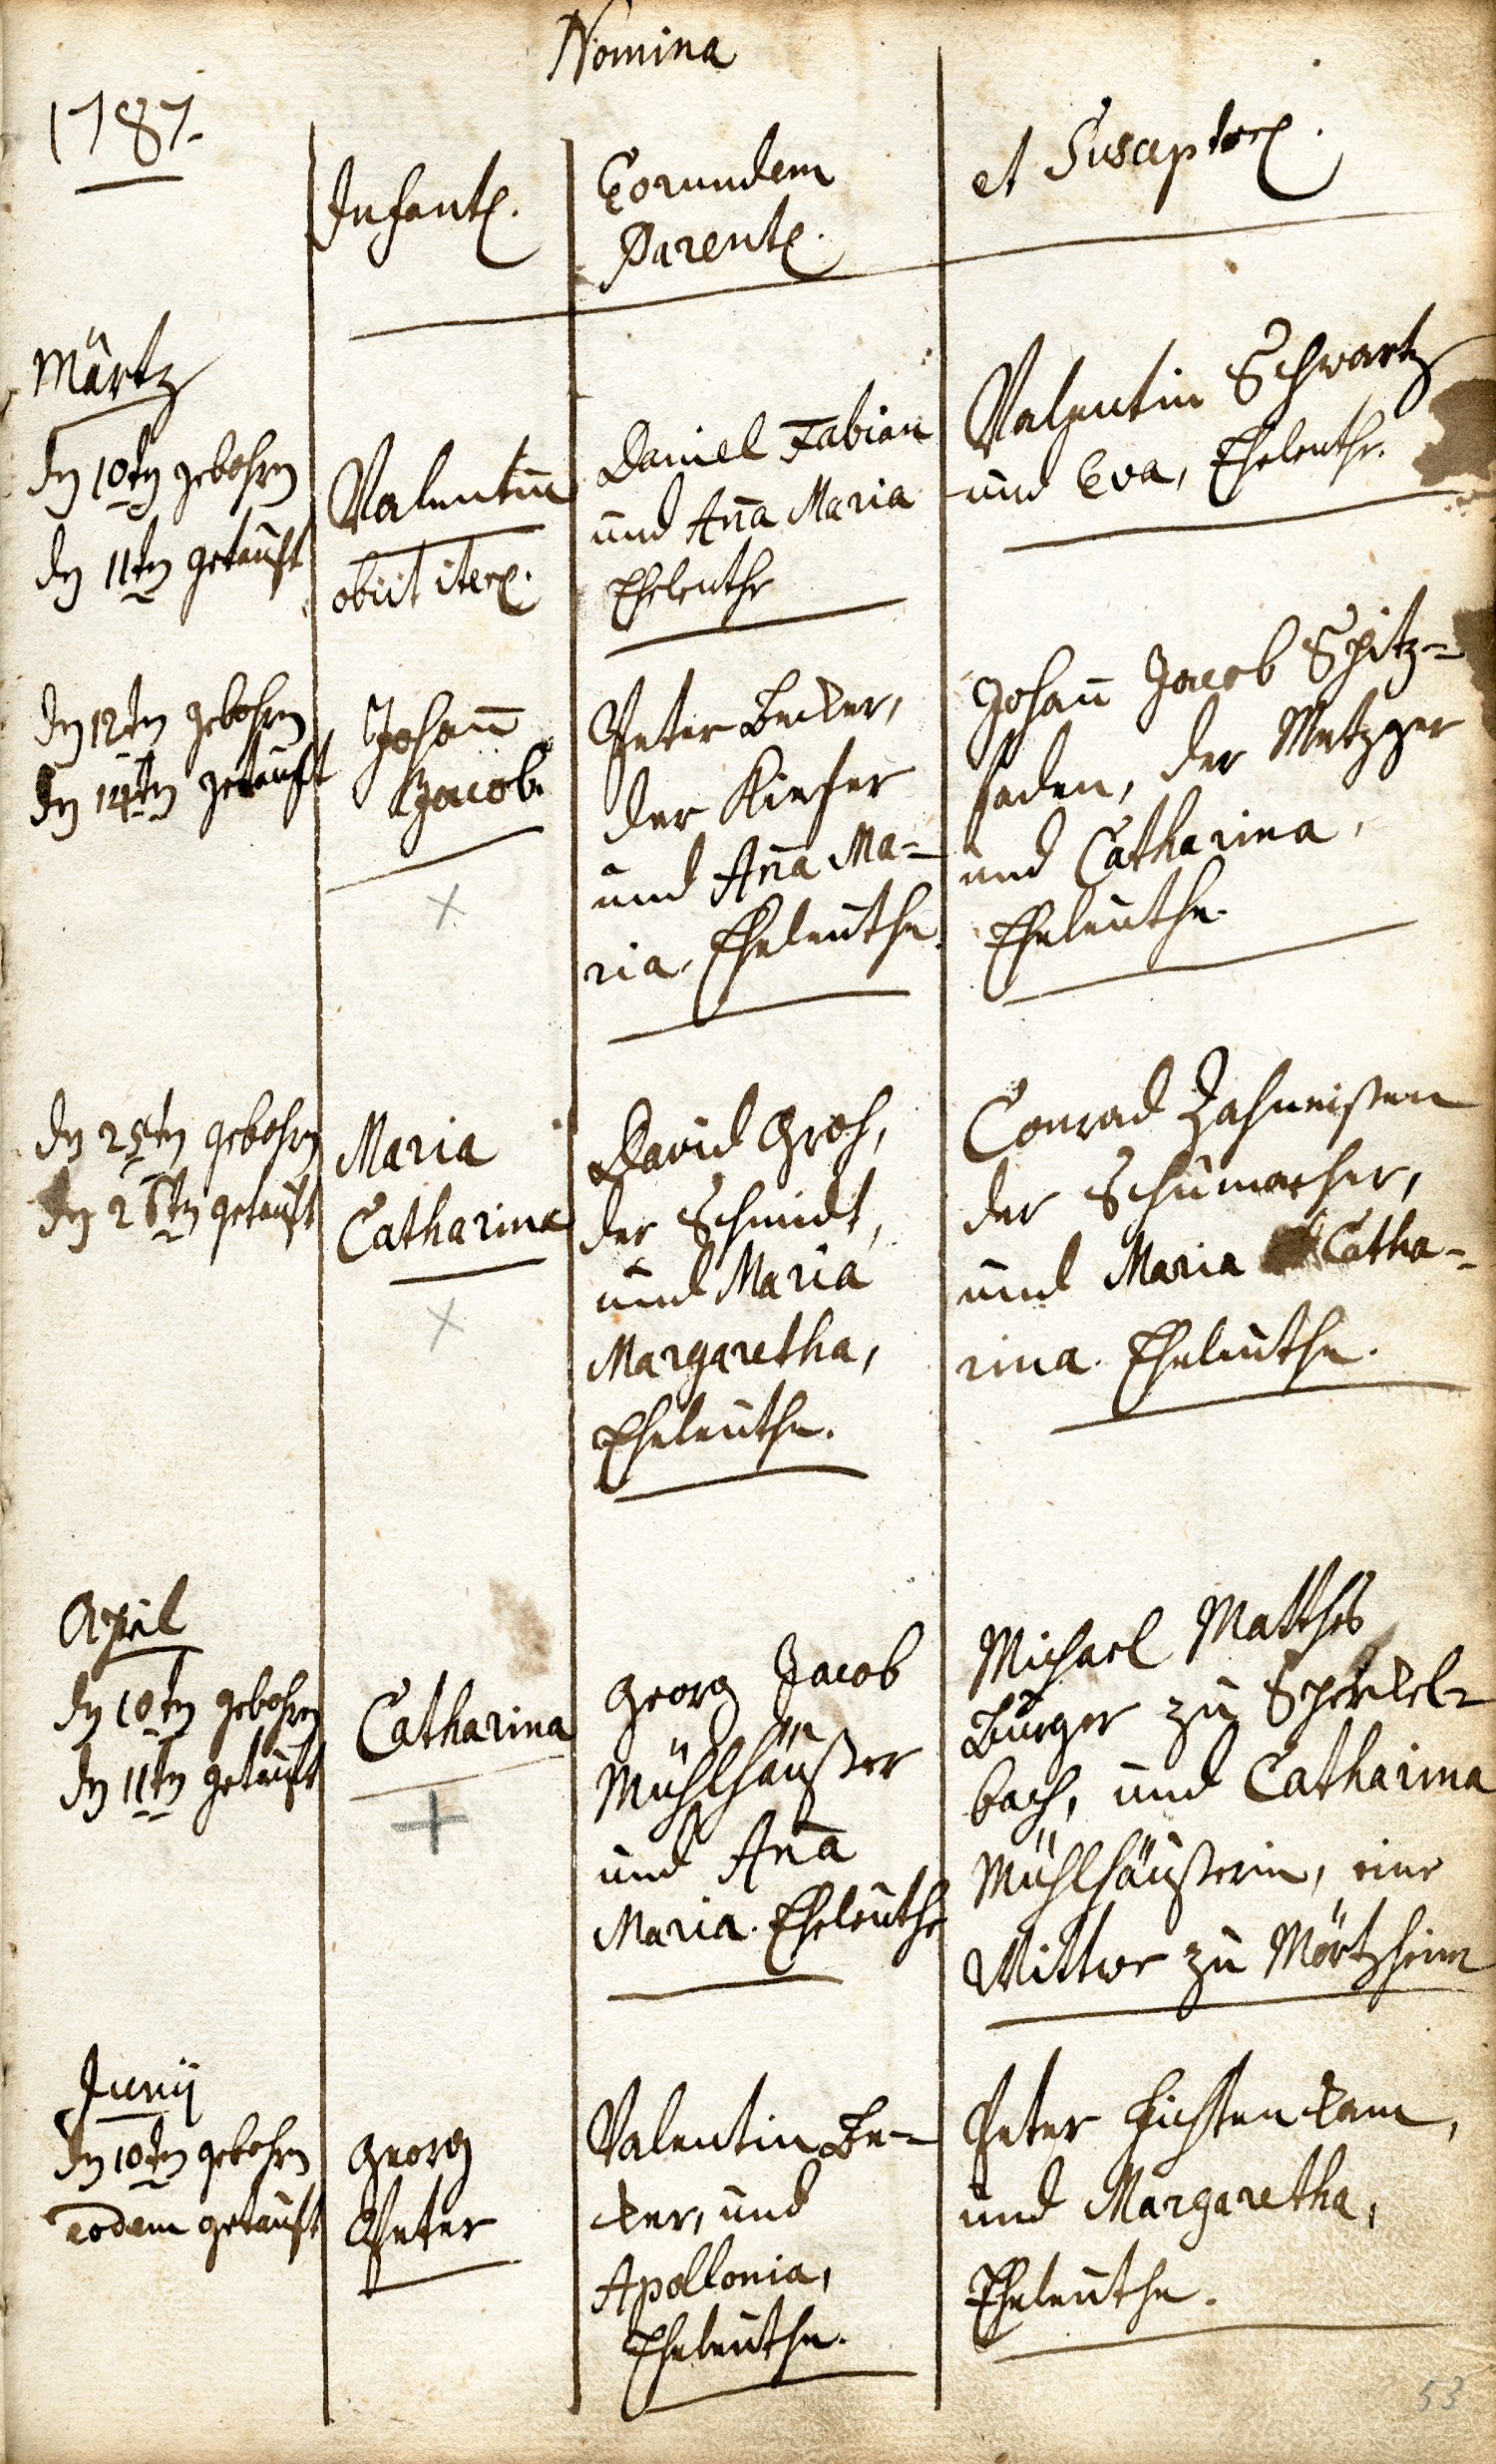 Nomina
1787.
Infantꝭ.
Eorundem
Parentꝭ.
et Susceptorꝭ.
Märtz
dn 10tn gebohrn
dn 11tn getauft
Valentin
obiit iterꝭ.
Daniel Fabian
und Ana Maria
Eheleuthe
Valentin Schwartz
und Eva, Eheleuthe.
dn 12tn gebohrn
dn 14tn getauft
Johann
Jacob.
Peter Becker,
der Kiefer
und Ana Ma-
ria, Eheleuthe.
Johann Jacob Spitz-
faden, der Metzger
und Catharina,
Eheleuthe.
dn 25tn gebohrn
dn 26tn getauft
Maria
Catharina
David Groh,
der Schmidt,
und Maria
Margaretha,
Eheleuthe.
Conrad Zahneisen
der Schumacher,
und Maria Catha-
rina. Eheleuthe.
April
dn 10tn gebohrn
dn 11tn getauft
Catharina
Georg Jacob
Mühlhäußer
und Ana
Maria. Eheleuthe
Michael Matthes
Burger zu
bach, und Catharina
Mühlhäußerin, eine
Wittwe zu Mörtzheim
Junij
dn 10tn gebohrn
eodem getauft
Georg
Peter
Valentin Be-
cker, und
Apollonia,
Eheleuthe.
Peter
und Margaretha,
Eheleuthe.
53